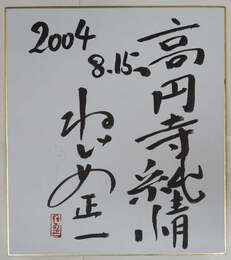 高円寺純情
2004
8.15
ねじめ正一